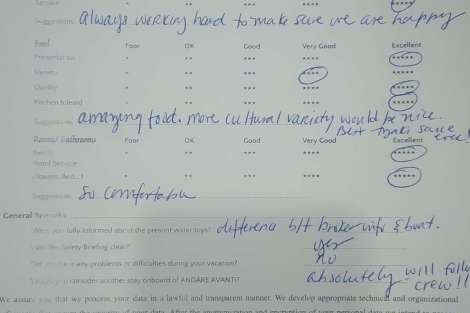 Service * ** *** **** *****
Suggestions Always working hard to make sure we are happy
Food Poor OK Good Very Good Excellent
Presentation * ** *** **** *****
Variety * ** *** **** *****
Quality * ** *** **** *****
Kitchen Islead * ** *** **** *****
Suggestions amazing food. more cultural variety would be nice.
Best
sauce ever!
Rooms/ Bathrooms Poor OK Good Very Good Excellent
** *** **** *****
Hotel Service
* ** *** **** *****
Suggestions So comfortable
General Remarks
Were you fully informed about the present water toys? b/t broker info & boat.
Was the Safety Briefing clear? yes
Did you have any problems or difficulties during your vacation? No
Would you consider another stay onboard of ANDARE AVANTI? absolutely will
crew!!
We assure you that we process your data in a lawful and transparent manner. We develop appropriate technical and organizational